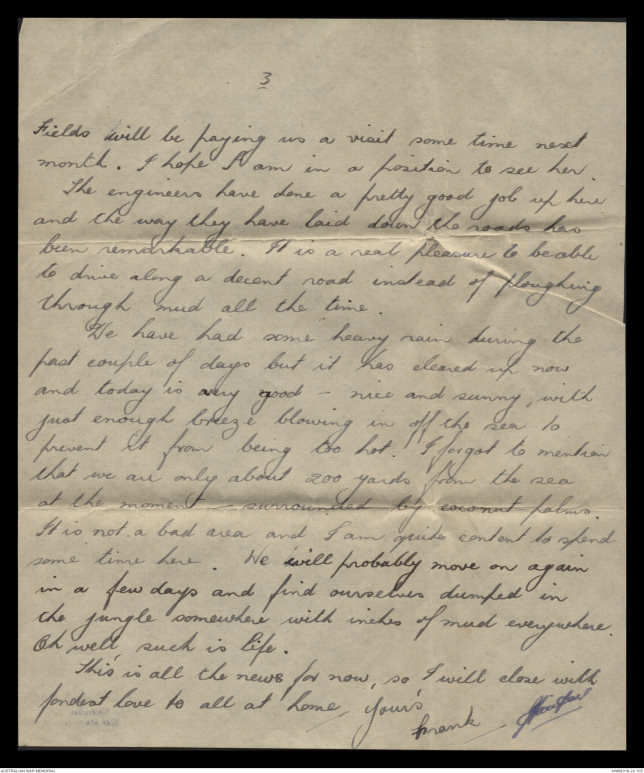 3
Fields will be paying us a visit some time next
month. I hope I am in a position to see her.
The engineers have done a pretty good job up here
and the way they have laid down the roads has
been remarkable. It is a real pleasure to be able
to drive along a decent road instead of ploughing
through mud all the time.
We have had some heavy rain during the
past couple of days but it has cleared up now
and today is very good - nice and sunny, with
just enough breeze blowing in off the sea to
prevent it from being too hot. I forgot to mention
that we are only about 200 yards from the sea
at the moment - surrounded by coconut palms.
It is not a bad area and I am quite content to spend
some time here. We will probably move on again
in a few days and find ourselves dumped in
the jungle somewhere with inches of mud everywhere.
Oh well, such is life.
This is all the news for now, so I will close with
fondest love to all at home, Yours
Frank
AUSTRALIAN WAR MEMORIAL